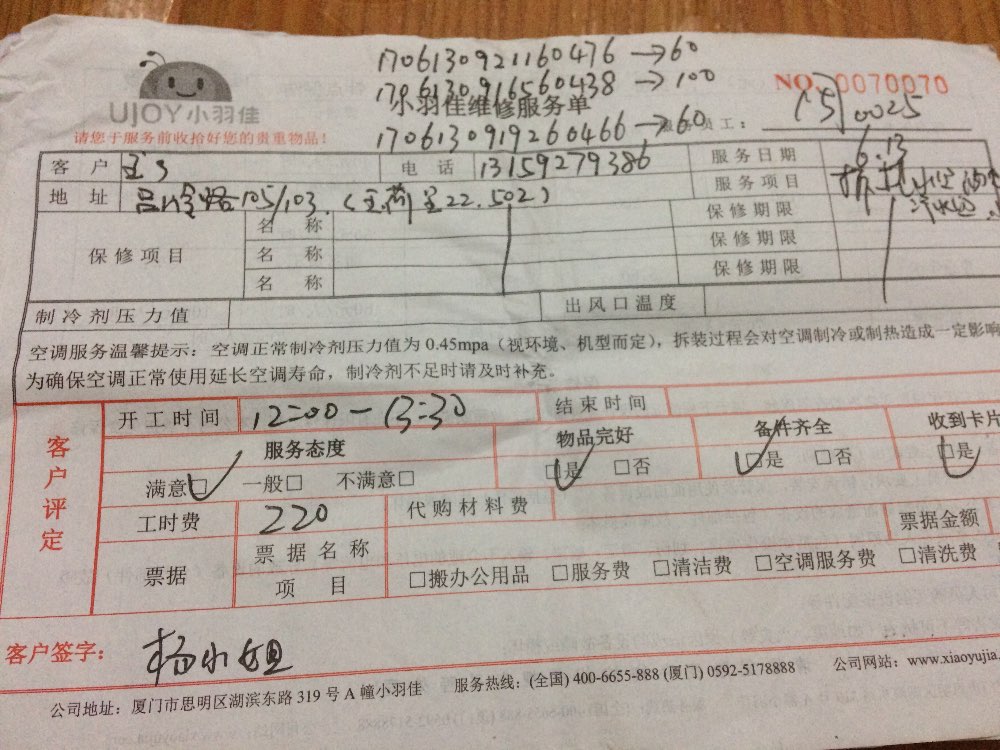 1706130921160476→60
1706130916560438→100
NO. 0070070
UJOY小羽佳
小羽佳维修服务单
请您于服务前收拾好您的贵重物品!
1706130919260466→60
服务员工: 0025
客户 电话 13159279386 服务日期 6.13
地址 105/103. 22.502) 服务项目
保修项目 名称 保修期限
名称 保修期限
名称 保修期限
制冷剂压力值 出风口温度
空调服务温馨提示:空调正常制冷剂压力值为 0.45mpa(视环境、机型而定),拆装过程会对空调制冷或制热造成一定影响
为确保空调正常使用延长空调寿命,制冷剂不足时请及时补充。
客户评定
开工时间 12:00-13:30 结束时间
服务态度 物品完好 备件齐全 收到卡片
满意□ 一般□ 不满意□ □是 □否 □是 □否 □是
工时费 220 代购材料费
票据 票据名称 票据金额
项目 □搬办公用品 □服务费 □清洁费 □空调服务费 □清洗费
客户签字: 杨小姐
公司地址:厦门市思明区湖滨东路 319 号 A 幢小羽佳 服务热线:(全国) 400-6655-888 (厦门) 0592-5178888 公司网站:www.xiaoyujia.